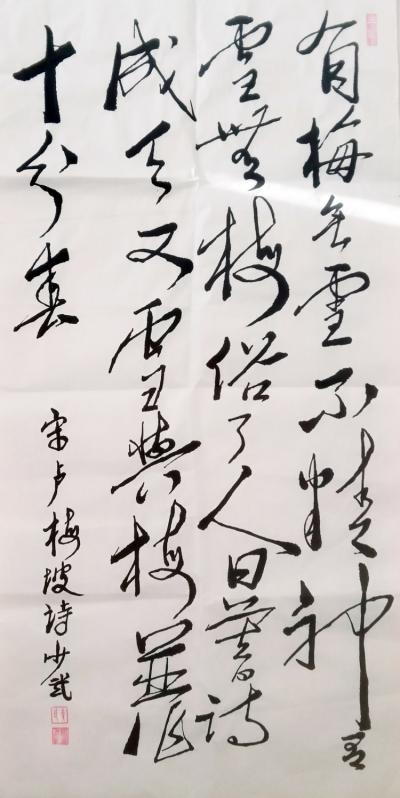 有梅无雪不精神有
雪無梅俗了人日暮诗
成天又雪與梅並作
十分春
宋卢梅坡詩